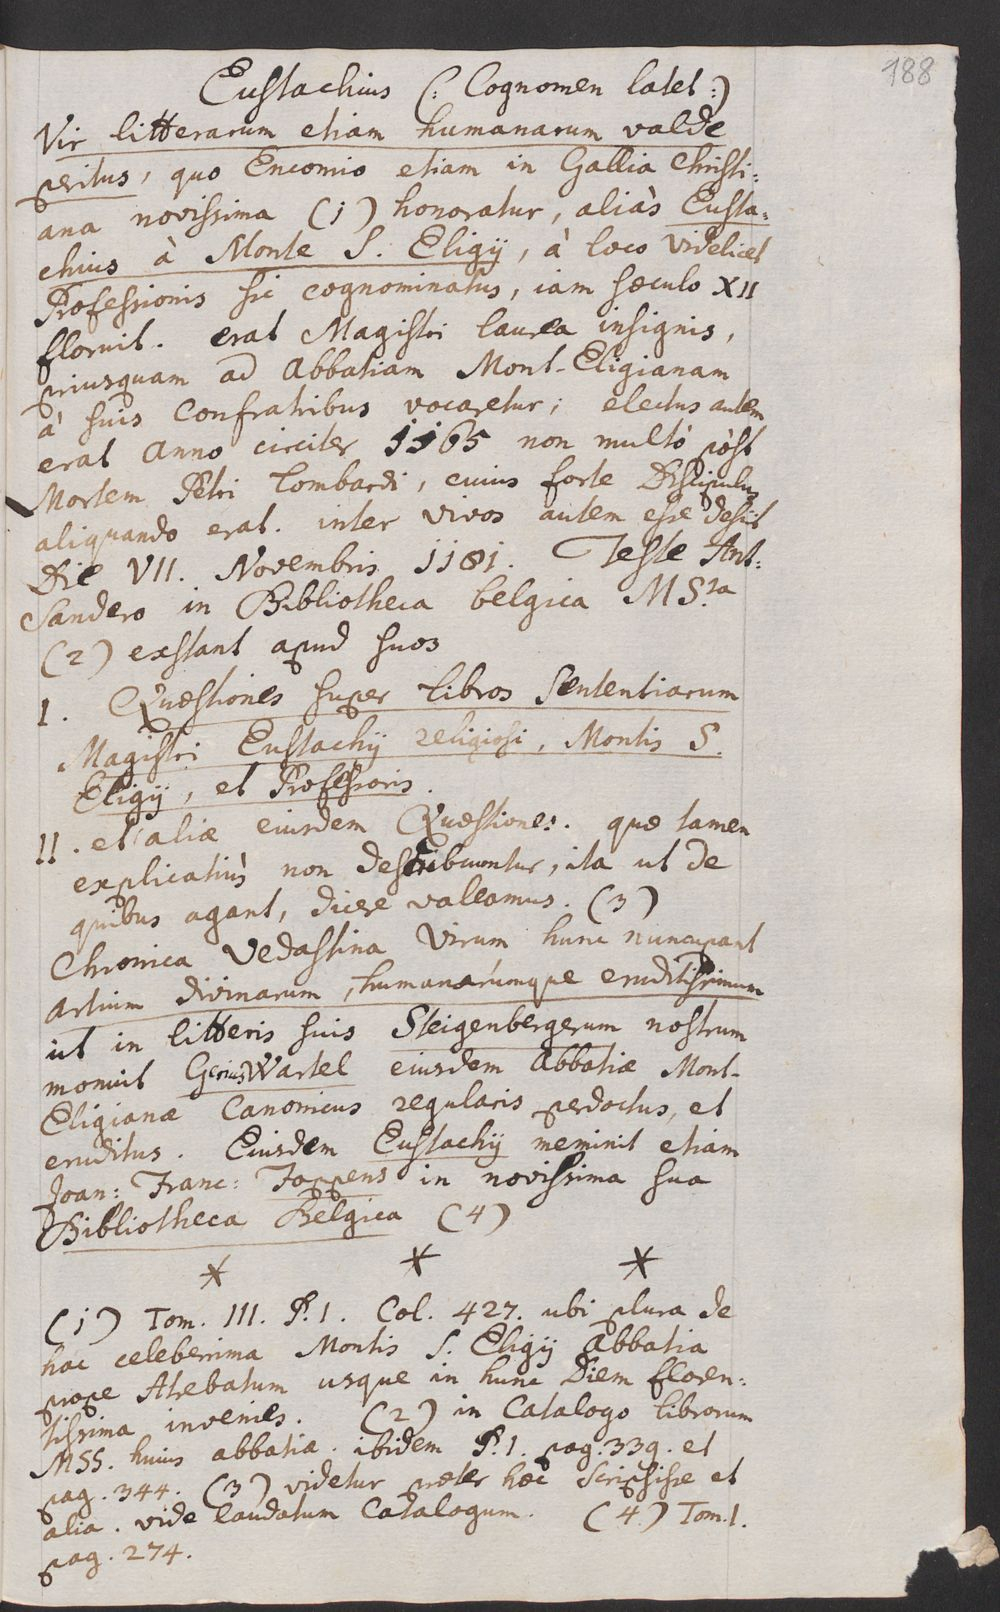 188
Eustachius (: Cognomen latet :)
Vir litterarum etiam humanarum valde
peritus, quo Encomio etiam in Gallia Christi:
ana novissima (1) honoratur, aliàs Eusta:
chius à Monte S. Eligij, à loco videlicet
Professionis sic cognominatus, iam sæculo XII
floruit. erat Magistri laurea insignis,
priusquam ad Abbatiam Mont-Eligianam
à suis Confratribus vocaretur; electus autem
erat Anno circiter 1165 non multò pòst
Mortem Petri Lombardi, cuius forte Discipulus
aliquando erat. inter vivos autem esse desijt
Die VII. Novembris 1181. Teste Ant:
Sandero in Bibliotheca belgica MS.ta
(2) exstant apud suos
I. Quæstiones super libros Sententiarum
Magistri Eustachij religiosi, Montis S.
Eligij, et Professoris.
II. et aliæ eiusdem Quæstiones. quæ tamen
explicatiùs non describuntur, ita ut de
quibus agant, dicere valeamus. (3)
Chronica Vedastina Virum hunc nuncupant
artium divinarum, humanarúmque eruditissimum
ut in litteris suis Steigenbergerum nostrum
monuit Wartel eiusdem Abbatiæ Mont-
Eligianæ Canonicus regularis perdoctus, et
eruditus. Eiusdem Eustachij meminit etiam
Joan: Franc: Foppens in novissima sua
Bibliotheca Belgica (4)
* * *
(1) Tom. III. P. I. Col. 427. ubi plura de
hac celeberrima Montis S. Eligij Abbatia
prope Atrebatum usque in hunc Diem floren:
tissima invenies. (2) in Catalogo librorum
MSS. huius abbatiæ. ibidem P. I. pag. 339. et
pag. 344. (3) videtur præter hæc scripsisse et
alia. vide laudatum Catalogum. (4) Tom. I.
pag. 274.